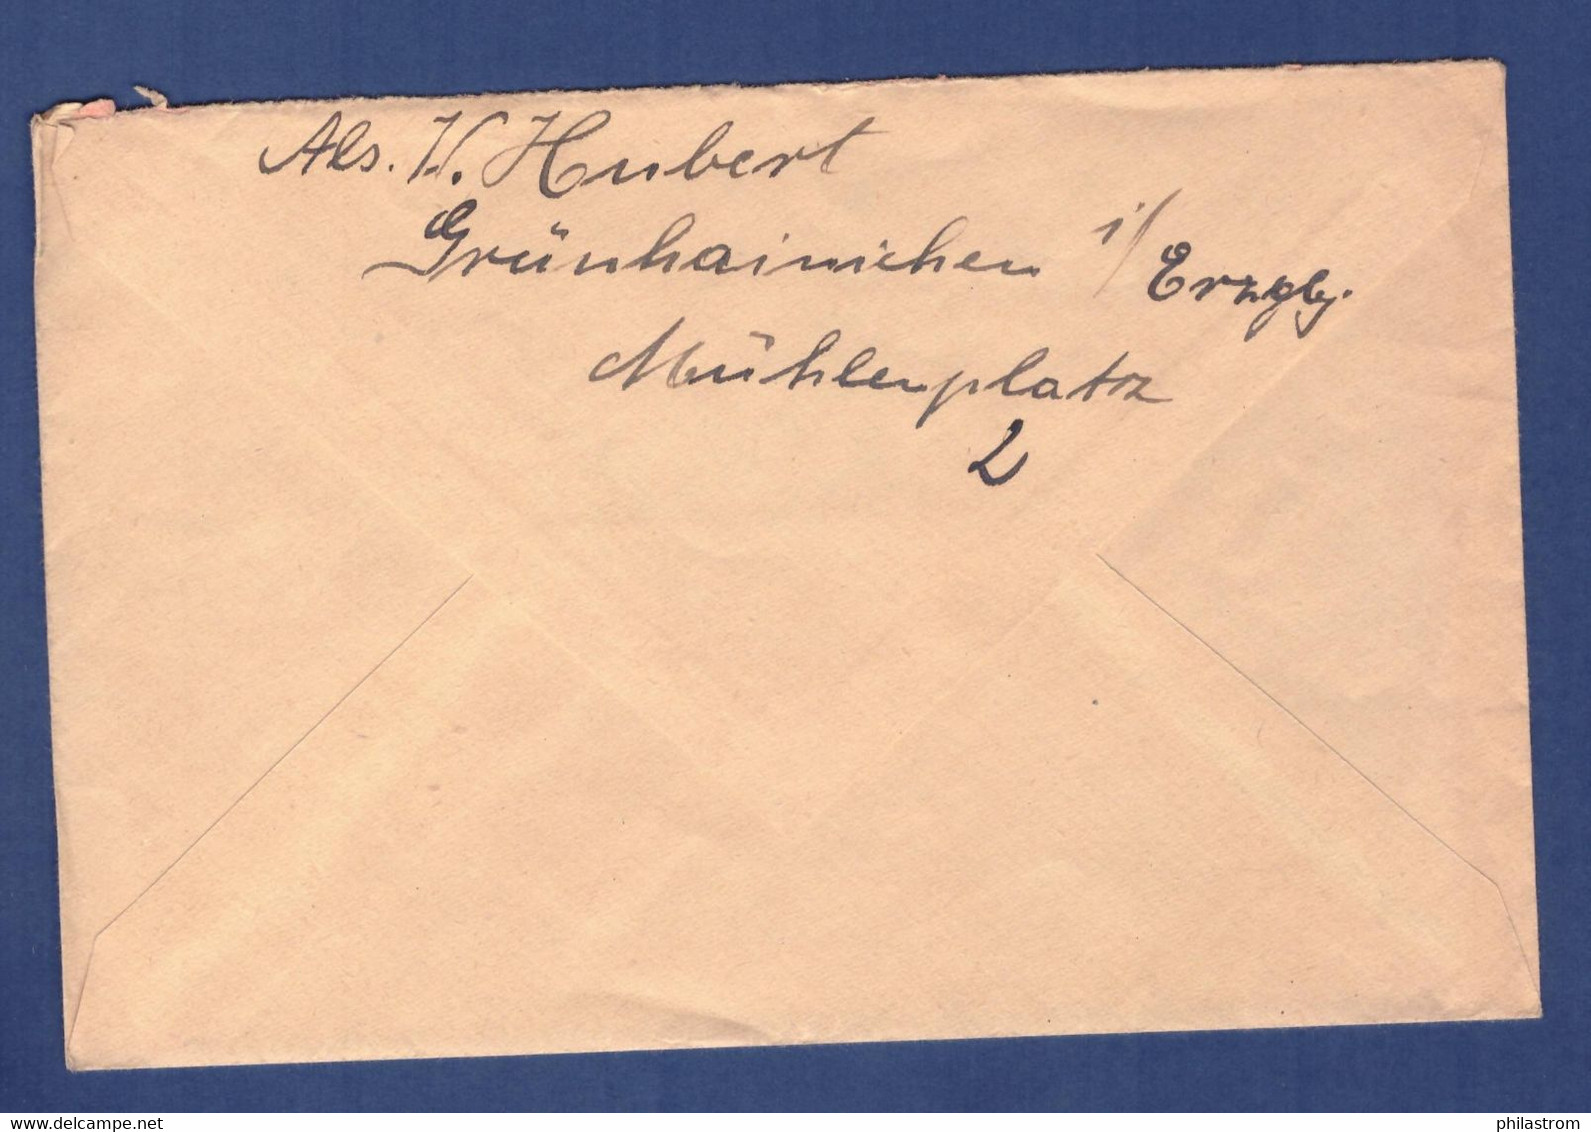 Abs. K. Hubert
Grünhainichen i/Erzgb.
Mühlenplatz
2
www.delcampe.net
philastrom